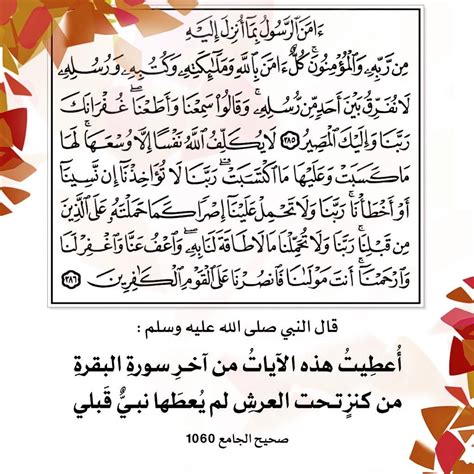 ءَامَنَ ٱلرَّسُولُ بِمَآ أُنزِلَ إِلَيْهِ
مِن رَّبِّهِۦ وَٱلْمُؤْمِنُونَ ۚ كُلٌّ ءَامَنَ بِٱللَّهِ وَمَلَٰٓئِكَتِهِۦ وَكُتُبِهِۦ وَرُسُلِهِۦ
لَا نُفَرِّقُ بَيْنَ أَحَدٍ مِّن رُّسُلِهِۦ ۚ وَقَالُوا۟ سَمِعْنَا وَأَطَعْنَا ۖ غُفْرَانَكَ
رَبَّنَا وَإِلَيْكَ ٱلْمَصِيرُ ٢٨٥ لَا يُكَلِّفُ ٱللَّهُ نَفْسًا إِلَّا وُسْعَهَا ۚ لَهَا
مَا كَسَبَتْ وَعَلَيْهَا مَا ٱكْتَسَبَتْ ۗ رَبَّنَا لَا تُؤَاخِذْنَآ إِن نَّسِينَآ
أَوْ أَخْطَأْنَا ۚ رَبَّنَا وَلَا تَحْمِلْ عَلَيْنَآ إِصْرًا كَمَا حَمَلْتَهُۥ عَلَى ٱلَّذِينَ
مِن قَبْلِنَا ۚ رَبَّنَا وَلَا تُحَمِّلْنَا مَا لَا طَاقَةَ لَنَا بِهِۦ ۖ وَٱعْفُ عَنَّا وَٱغْفِرْ لَنَا
وَٱرْحَمْنَآ ۚ أَنتَ مَوْلَىٰنَا فَٱنصُرْنَا عَلَى ٱلْقَوْمِ ٱلْكَٰفِرِينَ ٢٨٦
قال النبي صلى الله عليه وسلم :
أُعطِيتُ هذه الآياتُ من آخرِ سورةِ البقرةِ
من كنزٍ تحت العرشِ لم يُعطَها نبيٌّ قَبلي
صحيح الجامع 1060